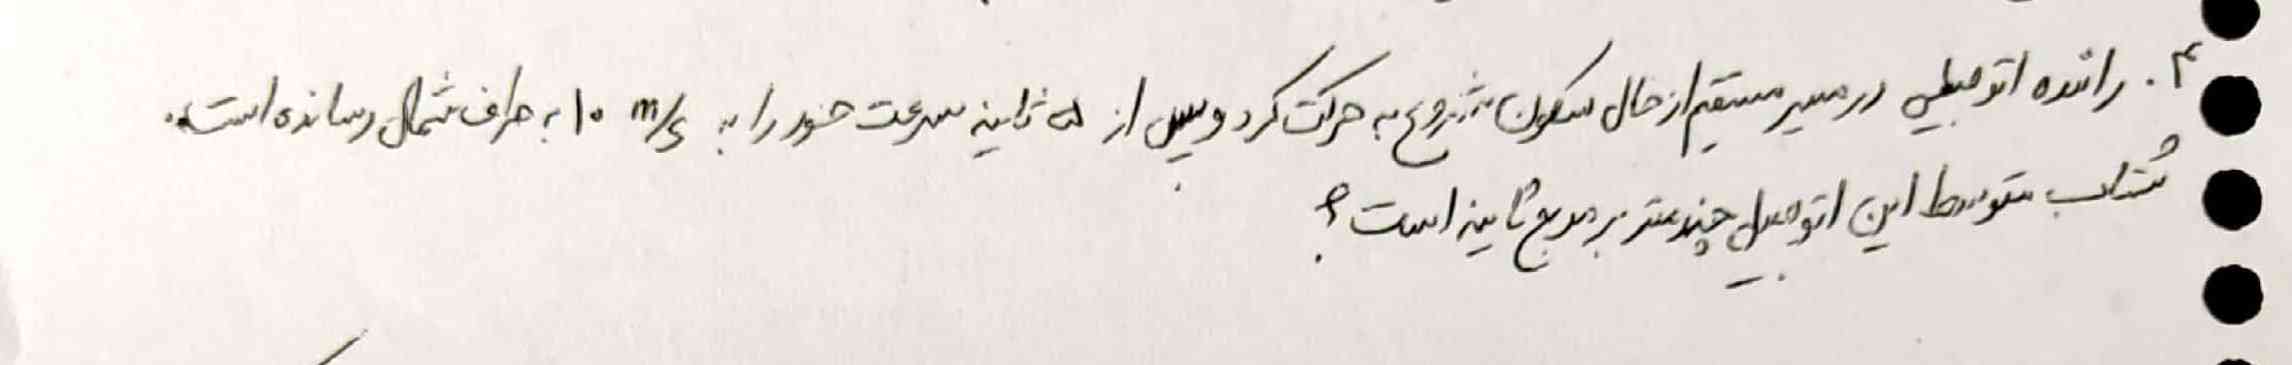 ۴. راننده اتومبیلی در مسیر مستقیم از حال سکون شروع به حرکت کرد و پس از ۵ ثانیه سرعت خود را به ۱۰ m/s به طرف شمال رسانده است.
شتاب متوسط این اتومبیل چند متر بر مربع ثانیه است؟